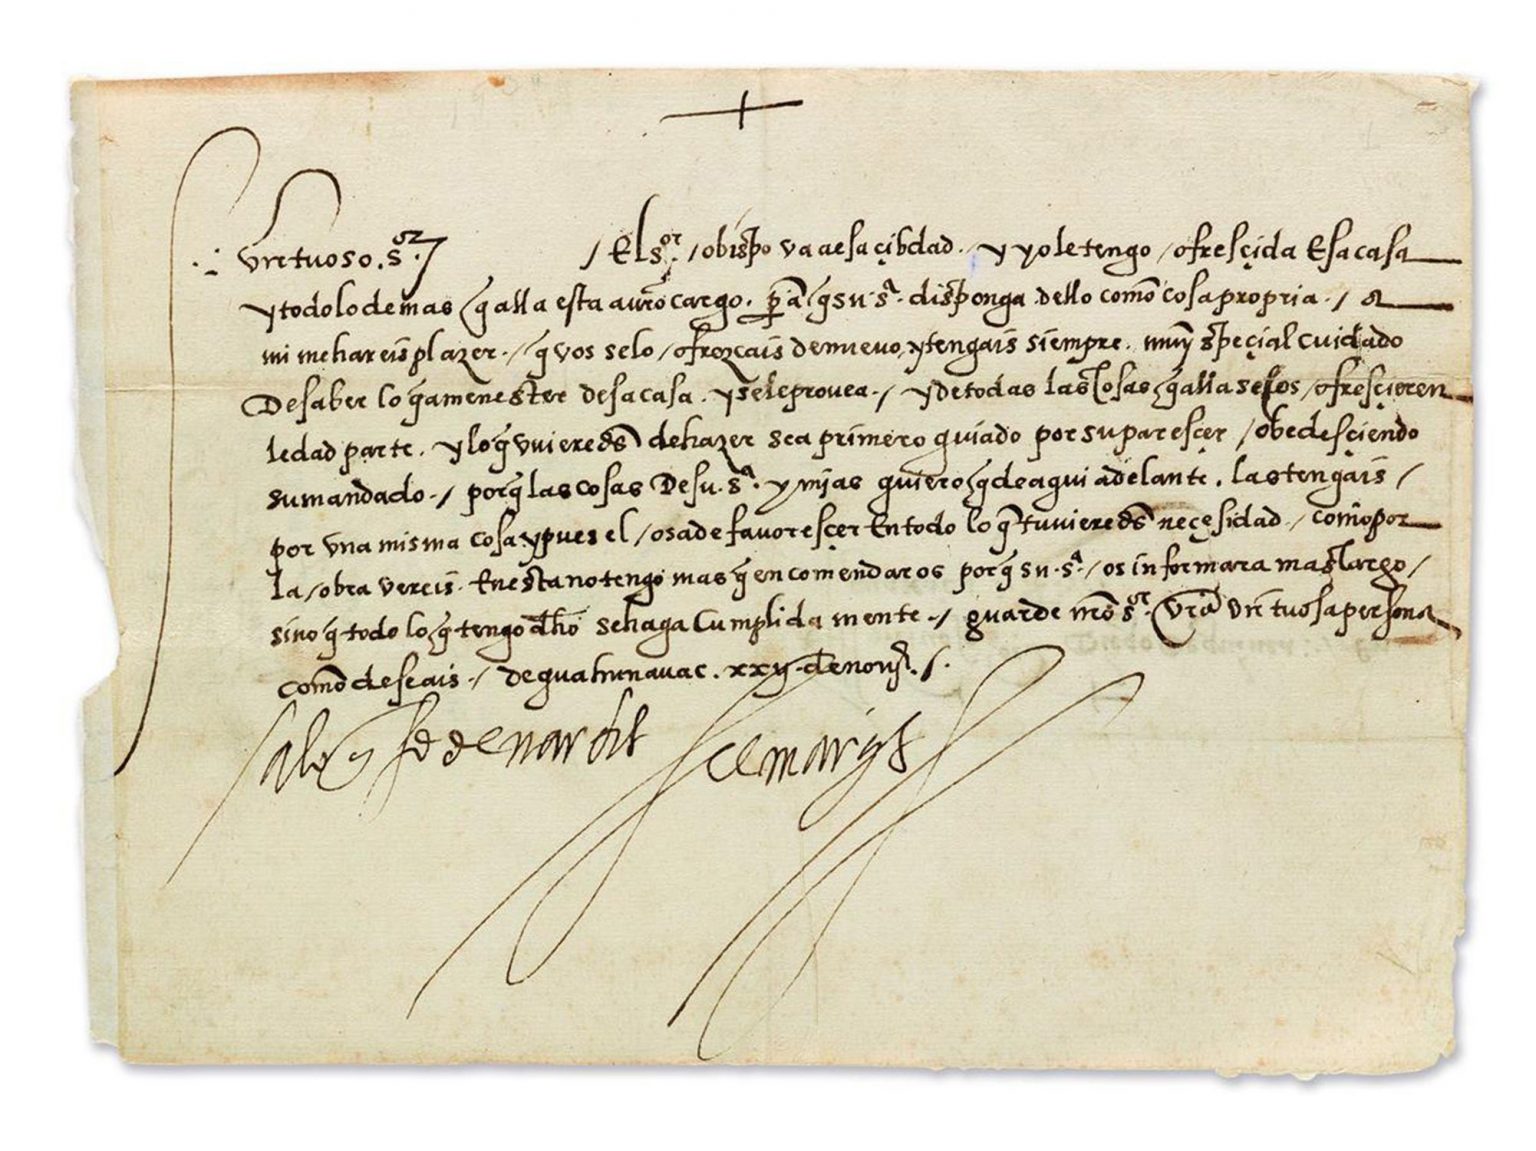 virtuoso . s.or / El s.or / obispo va a esa çibdad . y yo le tengo / ofresçida Esa casa
y todo lo demas q̃ alla esta a uro cargo . pa q̃ su . s.a . disponga dello como cosa propria . / a
mi me hareis plazer . / q̃ vos selo / ofrezcais de nuevo, y tengais siempre . muy speçial cuidado
De saber lo q̃ a menester desa casa . y se le provea . / y de todas las cosas q̃ alla se os / ofresçieren
le dad parte . y lo q̃ uvieredes de hazer sea primero guiado por su paresçer / obedesçiendo
su mandado . / porq̃ las cosas De su . s.a . y mias quiero q̃ de aqui adelante . las tengais /
por una misma cosa y pues el / os a de favoresçer En todo lo q̃ tuvieredes neçesidad . / como por
la / obra vereis . En esta no tengo mas q̃ encomendaros porq̃ su . s.a . / os informara mas largo /
sino q̃ todo lo q̃ tengo dho se haga Cumplidamente . / guarde nro s.or vra virtuosa persona
como deseais . / de guahunavac . xxij de nou.e . / .
el marq̃s